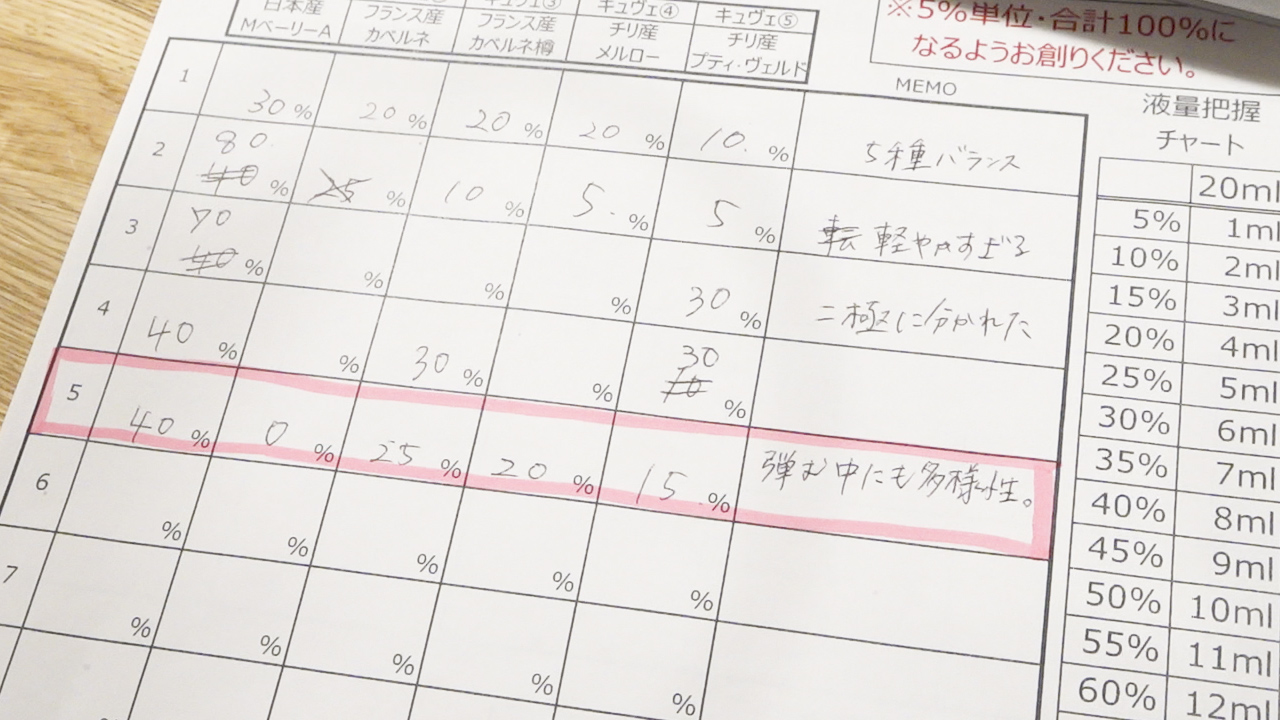 キュヴェ④ キュヴェ⑤
日本産 フランス産 フランス産 チリ産 チリ産
MベーリーA カベルネ カベルネ樽 メルロー プティ・ヴェルド
※5%単位・合計100%に
なるようお創りください。
MEMO
1 30% 20% 20% 20% 10.% 5種バランス
2 80 % % 10% 5.% 5% 軽やかすぎる
3 70 % % % % 30% 二極に分かれた
4 40% % 30% % 30 %
5 40% 0% 25% 20% 15.% 弾む中にも多様性。
6 % % % % %
7 % % % % %
%
液量把握
チャート
20ml
5% 1ml
10% 2ml
15% 3ml
20% 4ml
25% 5ml
30% 6ml
35% 7ml
40% 8ml
45% 9ml
50% 10ml
55% 11ml
60% 12ml